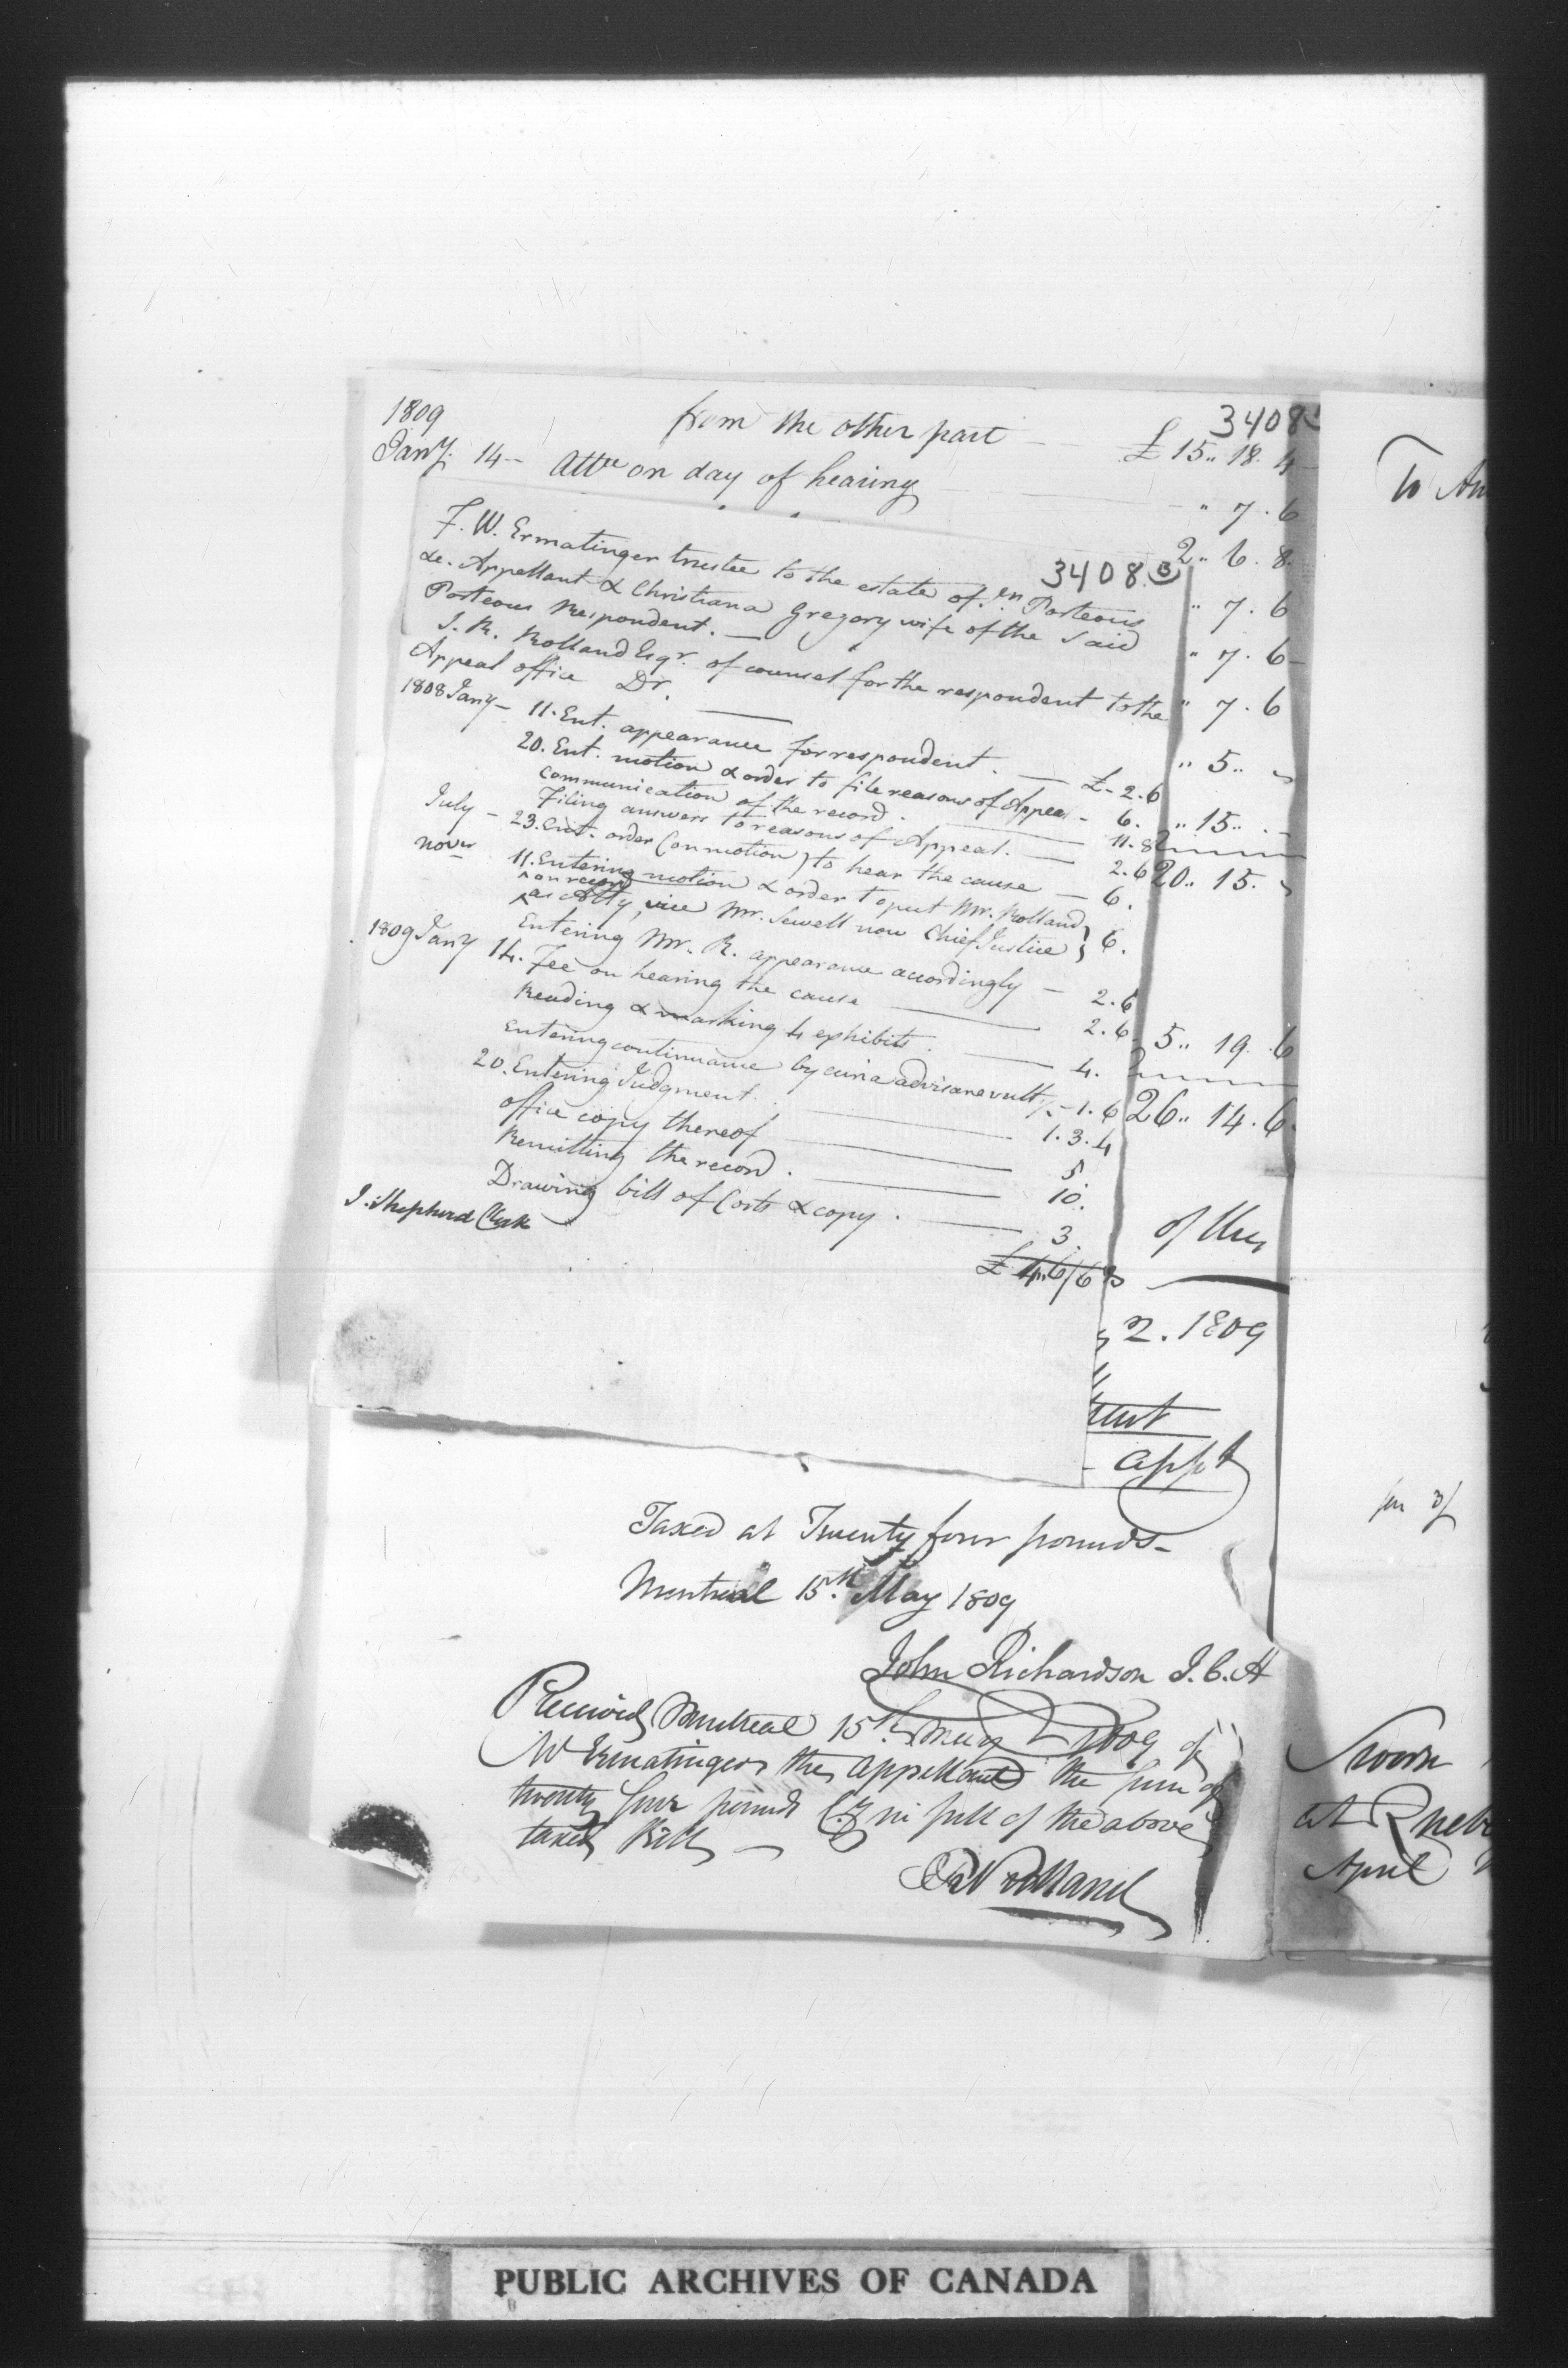 3408
1809 from the other part £ 15.. 18. 4
Jany. 14 - Attce on day of hearing " 7. 6
2.. 6. 8.
" 7. 6
" 7. 6
" 7. 6
" 5..
" 15..
20.. 15.
5.. 19. 6
26.. 14. 6.
3408.B
F. W. Ermatinger trustee to the estate of Porteous
&c. Appellant & Christiana Gregory wife of the said
Porteous Respondent. —
J. R. Rolland Esqr. of counsel for the respondent to the
Appeal office Dr.
1808 Jany - 11. Ent. appearance for respondent. — £ - 2. 6
20. Ent. motion & order to file reasons of Appeal - 6.
communication of the record. — 11. 8
Filing answers to reasons of Appeal. — 2. 6
July - 23. Ent. order (on motion) to hear the cause — 6.
novr 11. Entering motion & order to put Mr. Rolland
on record
as Atty, vice Mr. Sewell now Chief Justice } 6.
Entering Mr. R. appearance accordingly — 2. 6
1809 Jany 14. Fee on hearing the cause — 2. 6
Reading & marking 4 exhibits. — 4.
Entering continuance by curia advisare vult - 1. 6
20. Entering Judgment. — 1. 3. 4
office copy thereof — 5
Remitting the record. — 10.
Drawing bill of Costs & copy. — 3.
J. Shepherd Clerk
£ 4..6/6
of the
2. 1809
appt
Taxed at Twenty four pounds -
Montreal 15th. May 1809
John Richardson J. C. A
Received Montreal 15th May 1809 of
Mr Ermatinger the appellant the sum of
twenty four pounds Cy in full of the above
taxed Bill —
Rolland
To
Sworn
at
April